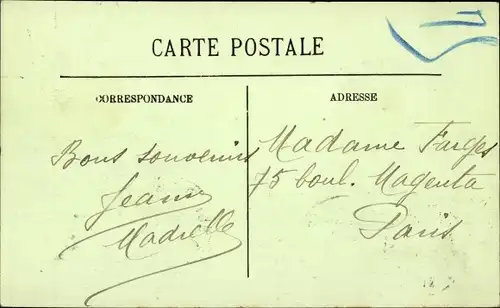 CARTE POSTALE
CORRESPONDANCE
ADRESSE
Bons souvenirs
Jeanne
Madame Farges
75 boul. Magenta
Paris